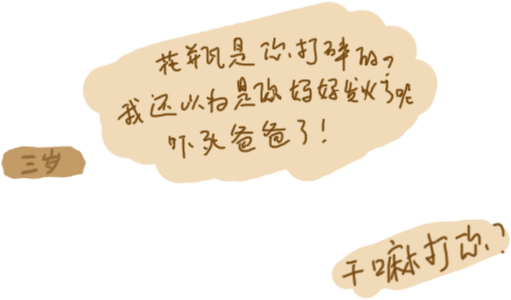 花瓶是你打碎的,
我还以为是你妈妈发火了呢
吓死爸爸了!
三岁
干嘛打你?